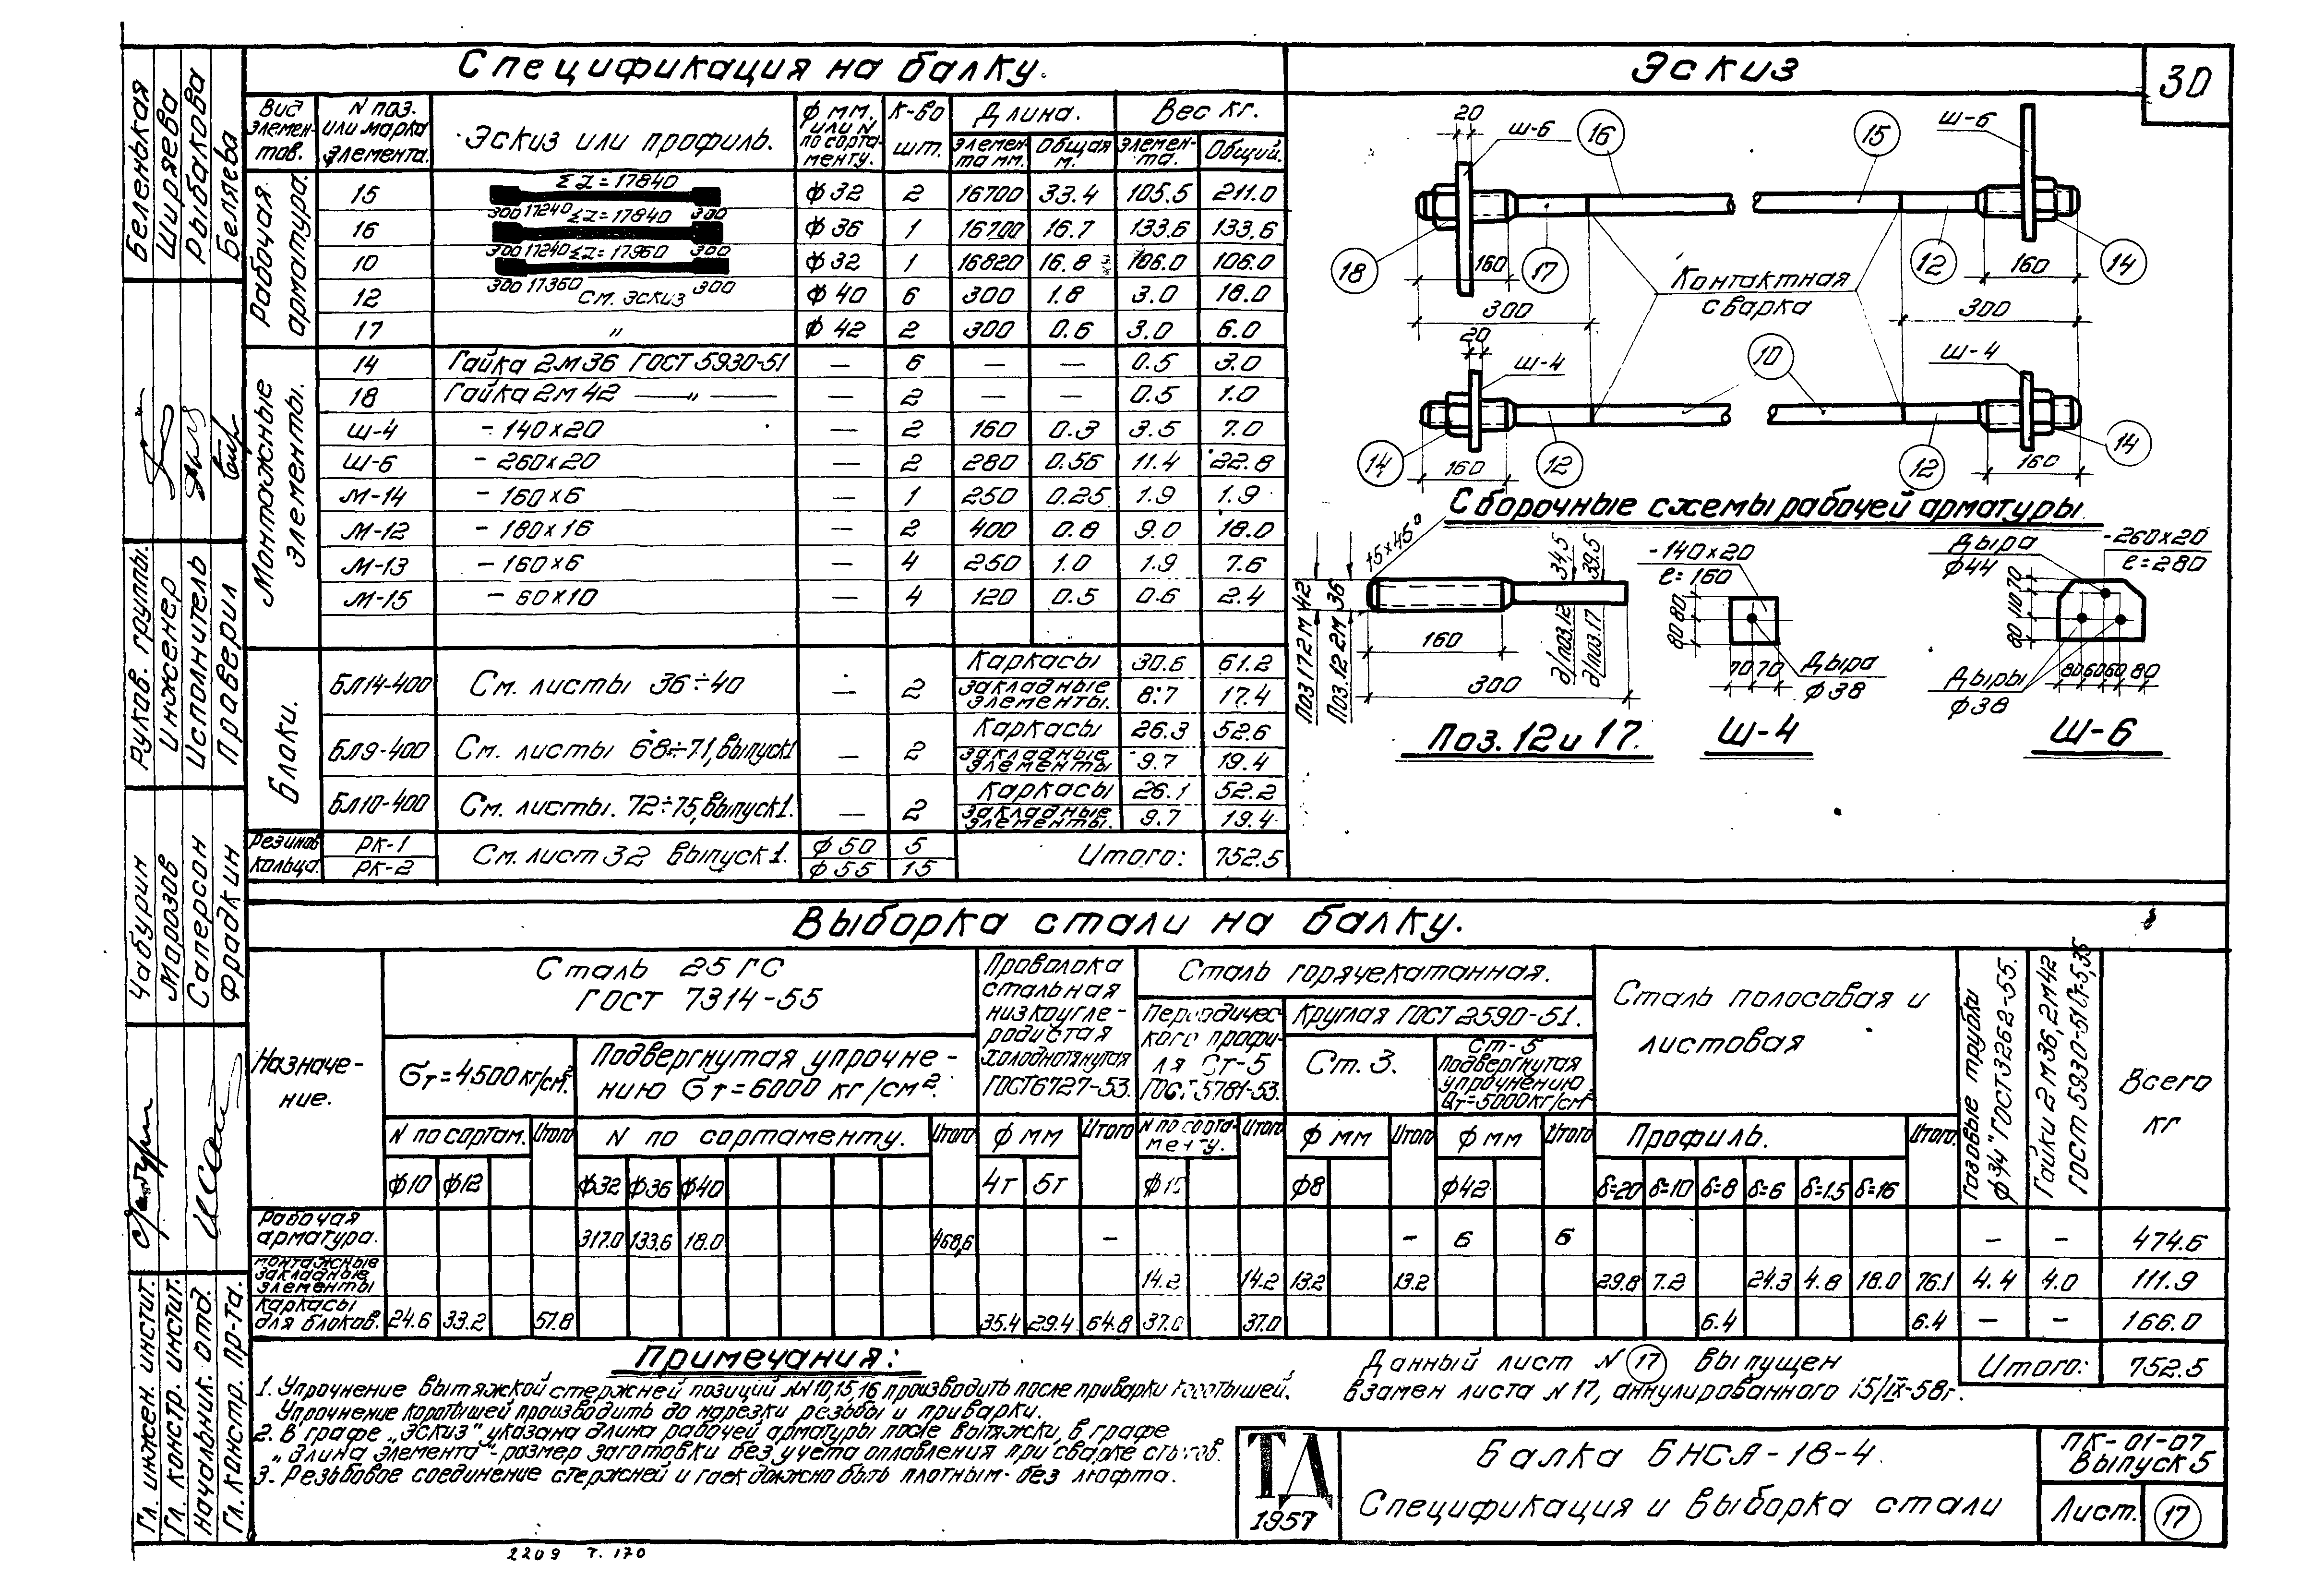 Спецификация на балку.
Эскиз
30
Вид элементов.
N поз. или марка элемента.
Эскиз или профиль.
ф мм. или N по сортаменту.
к-во шт.
Длина.
Вес кг.
Элемента мм.
Общая м.
Элемента.
Общий.
Рабочая арматура.
15 Σl=17840 300 17240 300 ф32 2 16700 33.4 105.5 211.0
16 Σl=17840 300 17240 300 ф36 1 16700 16.7 133.6 133.6
10 Σl=17960 300 17360 300 ф32 1 16820 16.8 106.0 106.0
12 См. эскиз ф40 6 300 1.8 3.0 18.0
17 " ф42 2 300 0.6 3.0 6.0
Монтажные элементы.
14 Гайка 2М36 ГОСТ 5930-51 — 6 — — 0.5 3.0
18 Гайка 2М42 —"— — 2 — — 0.5 1.0
Ш-4 - 140х20 — 2 160 0.3 3.5 7.0
Ш-6 - 260х20 — 2 280 0.56 11.4 22.8
М-14 - 160х6 — 1 250 0.25 1.9 1.9
М-12 - 180х16 — 2 400 0.8 9.0 18.0
М-13 - 160х6 — 4 250 1.0 1.9 7.6
М-15 - 60х10 — 4 120 0.5 0.6 2.4
Блоки.
БЛ14-400 См. листы 36÷40 — 2 Каркасы 30.6 61.2
закладные элементы. 8.7 17.4
БЛ9-400 См. листы 68÷71, выпуск 1 — 2 Каркасы 26.3 52.6
закладные элементы 9.7 19.4
БЛ10-400 См. листы. 72÷75, выпуск 1. — 2 Каркасы 26.1 52.2
закладные элементы. 9.7 19.4
Резинов кольца.
РК-1 ф50 5
РК-2 ф55 15
См. лист 32 выпуск 1.
Итого: 752.5
20 Ш-6 16 15 Ш-6
18 160 17 Контактная сварка 12 160 14
300 300
20 Ш-4 10 Ш-4
14 160 12 12 160 14
Сборочные схемы рабочей арматуры.
15х45° 34,5 39.5
Поз 17 2М 42
Поз. 12 2М 36
160
300
д/поз.12
д/поз.17
Поз. 12 и 17.
-140х20
l=160
80 80
70 70
Дыра ф38
Ш-4
Дыра ф44
-260х20
l=280
80 110 70
80 60 60 80
Дыры ф38
Ш-6
Выборка стали на балку.
Назначение.
Сталь 25ГС
ГОСТ 7314-55
Проволока стальная низкоуглеродистая холоднотянутая ГОСТ 6727-53.
Сталь горячекатанная.
Сталь полосовая и листовая
Газовые трубки ф3/4" ГОСТ 3262-55.
Гайки 2М36, 2М42 ГОСТ 5930-51
Всего кг
бт=4500 кг/см².
Подвергнутая упрочнению бт=6000 кг/см².
Периодического профиля Ст-5 ГОСТ 5781-53.
Круглая ГОСТ 2590-51.
Ст. 3.
Ст-5 Подвергнутая упрочнению бт=5000кг/см²
N по сортам. Итого N по сортаменту. Итого ф мм Итого N по сортаменту. Итого ф мм Итого ф мм Итого Профиль. Итого.
ф10 ф12 ф32 ф36 ф40 4т 5т ф15 ф8 ф42 б=20 б=10 б=8 б=6 б=1.5 б=16
Рабочая арматура. 317.0 133.6 18.0 468,6 — — 6 6 — — 474.6
Монтажные закладные элементы 14.2 14.2 13.2 13.2 29.8 7.2 24.3 4.8 18.0 76.1 4.4 4.0 111.9
Каркасы для блоков. 24.6 33.2 57.8 35.4 29.4 64.8 37.0 37.0 6.4 6.4 — — 166.0
Итого: 752.5
Примечания:
1. Упрочнение вытяжкой стержней позиций NN 10,15,16 производить после приварки коротышей.
Упрочнение коротышей производить до нарезки резьбы и приварки.
2. В графе „Эскиз" указана длина рабочей арматуры после вытяжки, в графе
„длина элемента"- размер заготовки без учета оплавления при сварке стыков.
3. Резьбовое соединение стержней и гаек должно быть плотным- без люфта.
Данный лист N 17 выпущен
взамен листа N 17, аннулированного 15/IX-58г.
ТД
1957
Балка БНСЛ-18-4.
Спецификация и выборка стали
ПК-01-07
Выпуск 5
Лист. 17
Беленькая
Ширяева
Рыбакова
Беляева
Руков. группы.
Инженер
Исполнитель
Проверил
Чабурин
Морозов
Саперсон
Фрадкин
Гл. инжен. инстит.
Гл. констр. инстит.
Начальник. отд.
Гл. констр. пр-та.
2209 т. 170